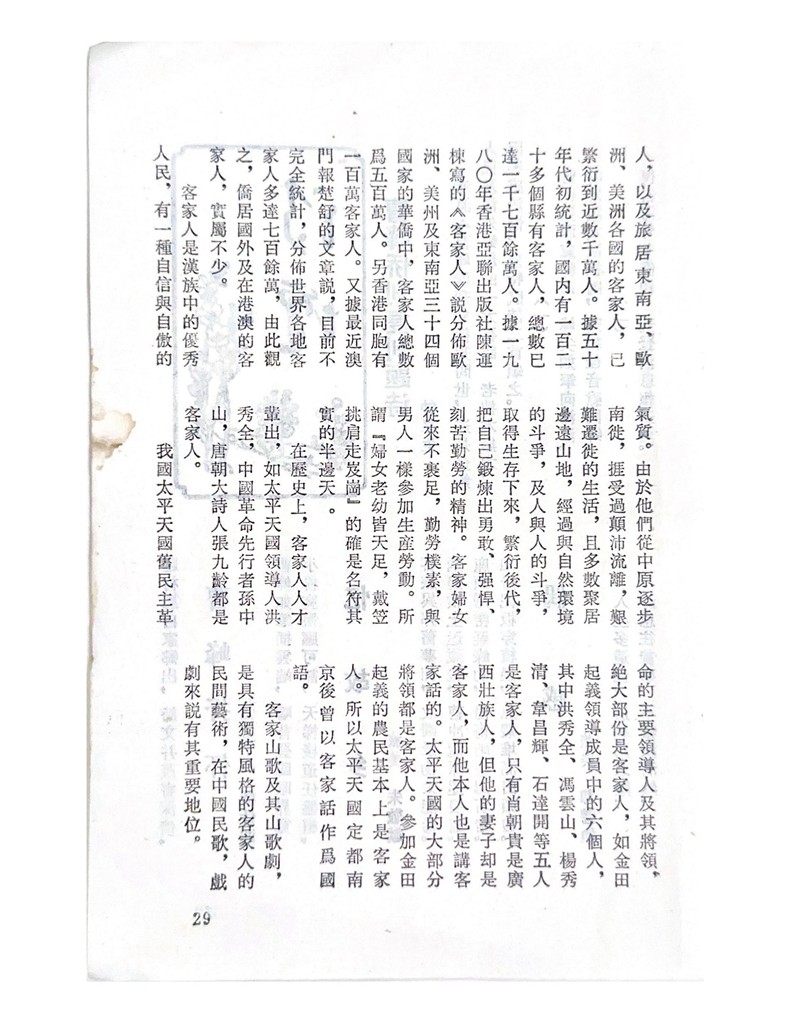 人，以及旅居東南亞、歐
洲、美洲各國的客家人，已
繁衍到近數千萬人。據五十
年代初統計，國内有一百二
十多個縣有客家人，總數已
達一千七百餘萬人。據一九
八〇年香港亞聯出版社陳運
棟寫的《客家人》説分佈歐
洲、美州及東南亞三十四個
國家的華僑中，客家人總數
爲五百萬人。另香港同胞有
一百萬客家人。又據最近澳
門報楚舒的文章説，目前不
完全統計，分佈世界各地客
家人多達七百餘萬，由此觀
之，僑居國外及在港澳的客
家人，實屬不少。
客家人是漢族中的優秀
人民，有一種自信與自傲的
氣质。由於他們從中原逐步
南徙，捱受過顛沛流離，艱
難遷徙的生活，且多數聚居
邊遠山地，經過與自然環境
的斗爭，及人與人的斗爭，
取得生存下來，繁衍後代，
把自己鍛煉出勇敢、强悍、
刻苦勤勞的精神。客家婦女
從來不裹足，勤勞樸素，與
男人一樣參加生産勞動。所
謂『婦女老幼皆天足，戴笠
挑肩走岌崗』的確是名符其
實的半邊天。
在歷史上，客家人人才
輩出，如太平天國領導人洪
秀全，中國革命先行者孫中
山，唐朝大詩人張九齡都是
客家人。
我國太平天國舊民主革
命的主要領導人及其將領，
絶大部份是客家人，如金田
起義領導成員中的六個人，
其中洪秀全、馮雲山、楊秀
清、韋昌輝、石達開等五人
是客家人，只有肖朝貴是廣
西壯族人，但他的妻子却是
客家人，而他本人也是講客
家話的。太平天國的大部分
將領都是客家人。參加金田
起義的農民基本上是客家
人。所以太平天國定都南
京後曾以客家話作爲國
語。
客家山歌及其山歌劇，
是具有獨特風格的客家人的
民間藝術，在中國民歌，戲
劇來説有其重要地位。
29